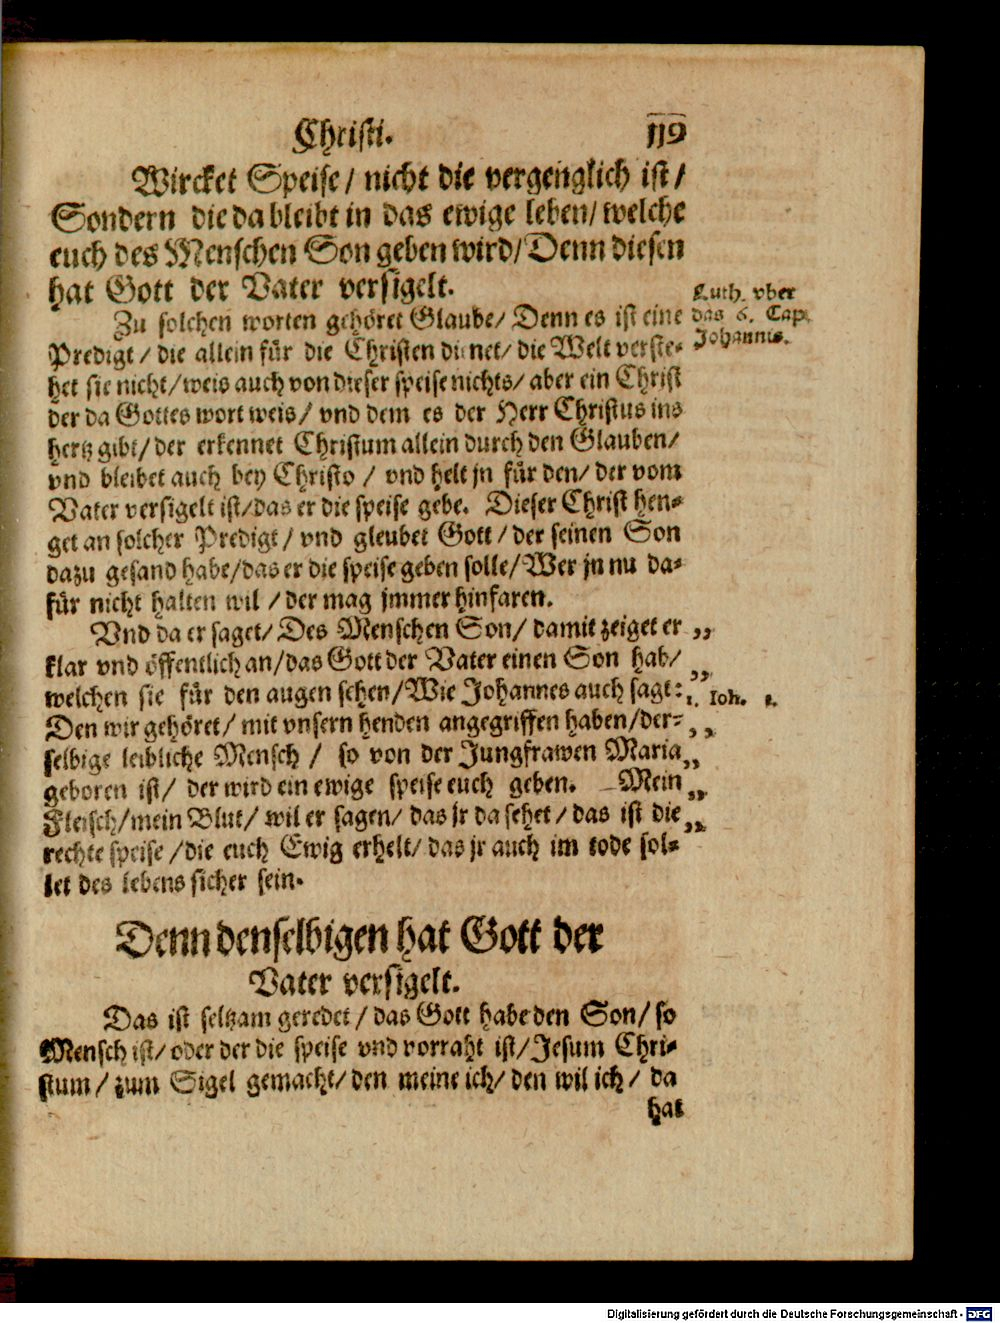 Christi. 119
Wircket Speise / nicht die vergenglich ist /
Sondern die da bleibt in das ewige leben / welche
euch des Menschen Son geben wird / Denn diesen
hat Gott der Vater versigelt.
Luth. vber
das 6. Cap.
Johannis.
Zu solchen worten gehöret Glaube / Denn es ist eine
Predigt / die allein für die Christen dienet / die Welt verste-
het sie nicht / weis auch von dieser speise nichts / aber ein Christ
der da Gottes wort weis / vnd dem es der Herr Christus ins
hertz gibt / der erkennet Christum allein durch den Glauben /
vnd bleibet auch bey Christo / vnd helt jn für den / der vom
Vater versigelt ist / das er die speise gebe. Dieser Christ hen-
get an solcher Predigt / vnd gleubet Gott / der seinen Son
dazu gesand habe / das er die speise geben solle / Wer jn nu da-
für nicht halten wil / der mag jmmer hinfaren.
Vnd da er saget / Des Menschen Son / damit zeiget er „
klar vnd öffentlich an / das Gott der Vater einen Son hab / „
welchen sie für den augen sehen / Wie Johannes auch sagt: 1. Ioh. 1.
Den wir gehöret / mit vnsern henden angegriffen haben / der- „
selbige leibliche Mensch / so von der Jungfrawen Maria „
geboren ist / der wird ein ewige speise euch geben. Mein „
Fleisch / mein Blut / wil er sagen / das jr da sehet / das ist die „
rechte speise / die euch Ewig erhelt / das jr auch im tode sol-
let des lebens sicher sein.
Denn denselbigen hat Gott der
Vater versigelt.
Das ist seltzam geredet / das Gott habe den Son / so
Mensch ist / oder der die speise vnd vorraht ist / Jesum Chri-
stum / zum Sigel gemacht / den meine ich / den wil ich / da
hat
Digitalisierung gefördert durch die Deutsche Forschungsgemeinschaft - DFG